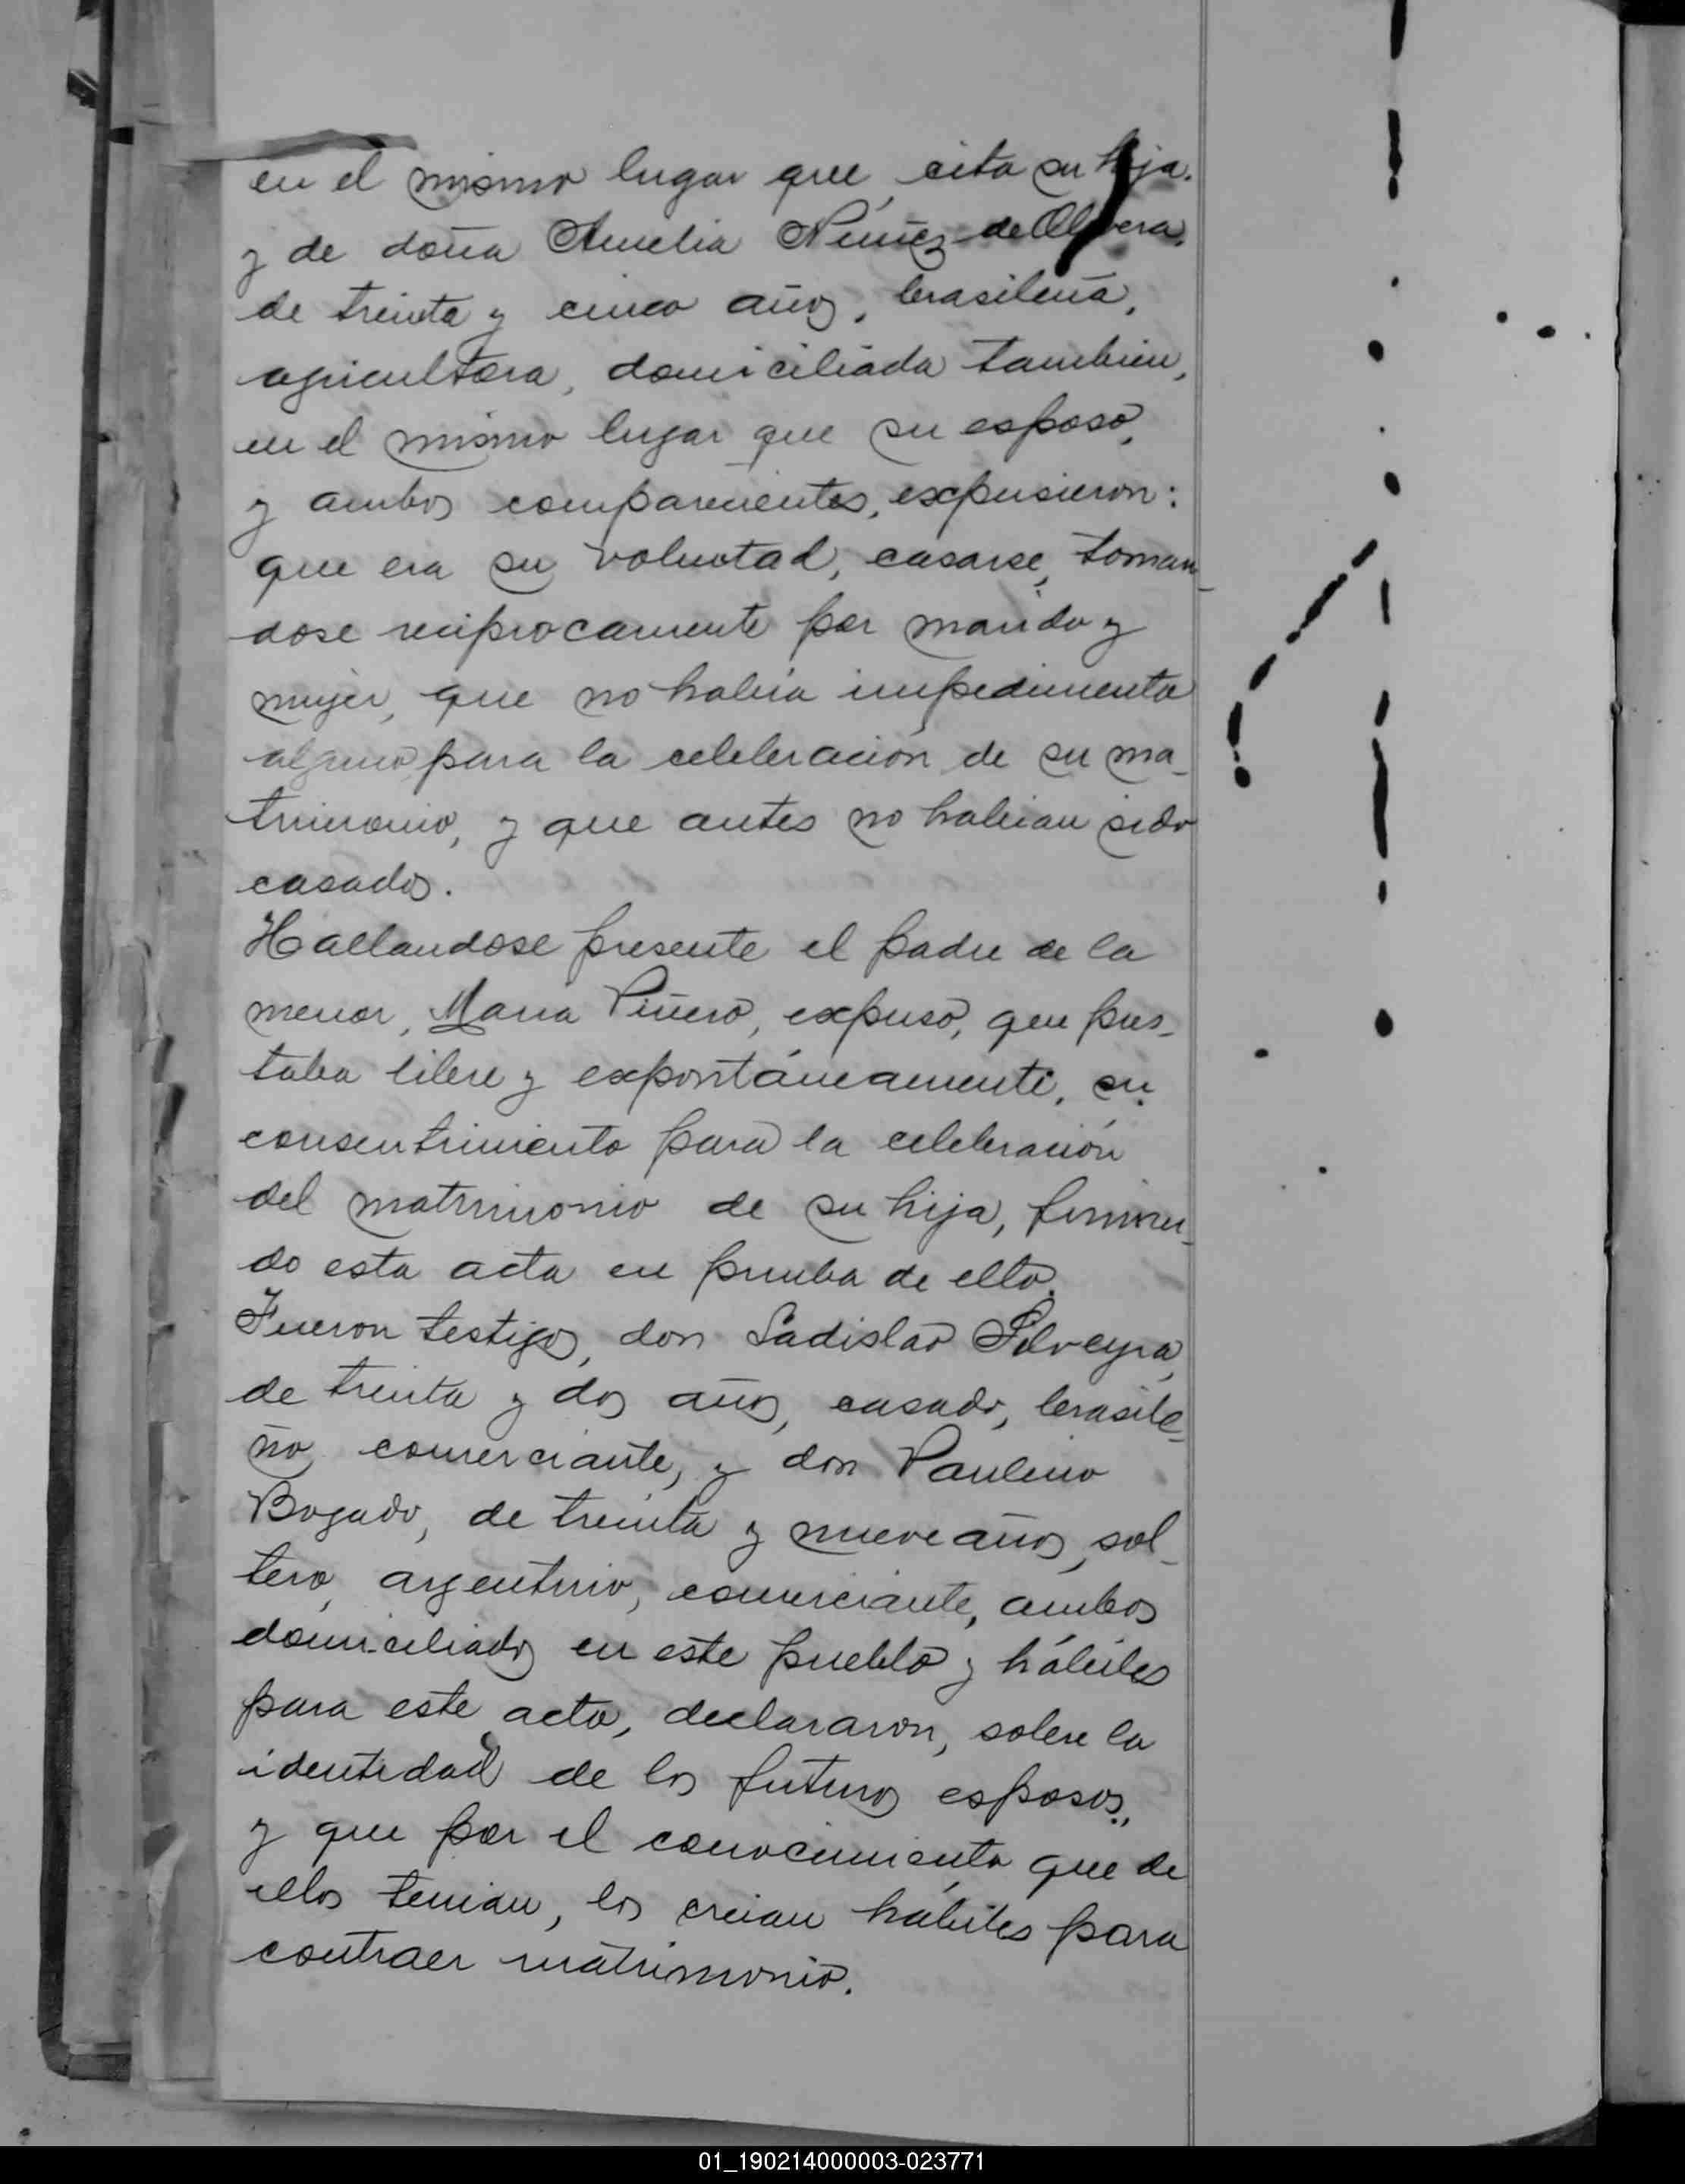 en el mismo lugar que cita su hija.
y de doña Amelia Núñez de Olivera,
de treinta y cinco años, brasileña,
agricultora, domiciliada tambien,
en el mismo lugar que su esposo,
y ambos comparecientes, expusieron:
que era su voluntad, casarse, toman
dose reciprocamente por marido y
mujer, que no habia impedimento
alguno para la celebración de su ma-
trimonio, y que antes no habian sido
casados.
Hallandose presente el padre de la
menor, Maria Piñero, expuso, que pres-
taba libre y expontáneamente, su
consentimiento para la celebración
del matrimonio de su hija, firman-
do esta acta en prueba de ello.
Fueron testigos, don Ladislao Silveyra,
de treinta y dos años, casado, brasile-
ño, comerciante, y don Paulino
Bogado, de treinta y nueve años, sol-
tero, argentino, comerciante, ambos
domiciliados en este pueblo y hábiles
para este acto, declararon, sobre la
identidad de los futuros esposos,
y que por el conocimiento que de
ellos tenian, los creian hábiles para
contraer matrimonio.
01_190214000003-023771